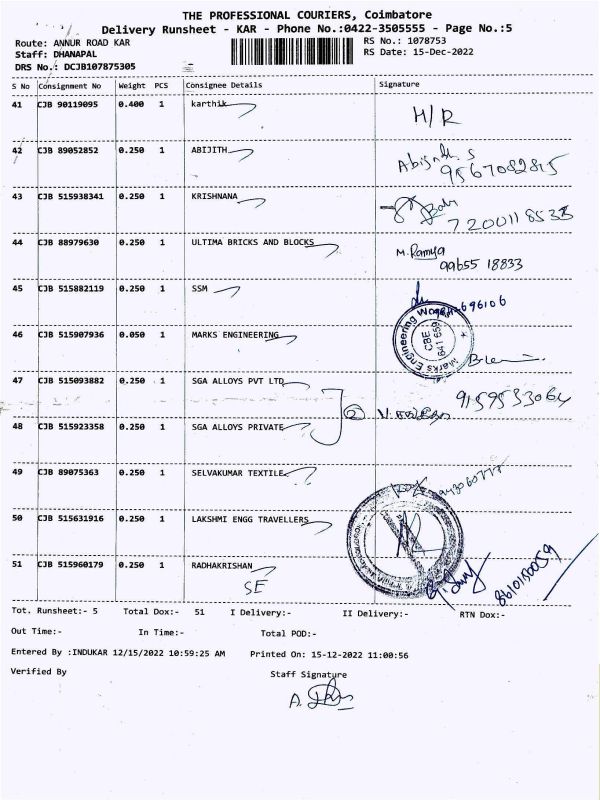 THE PROFESSIONAL COURIERS, Coimbatore
Delivery Runsheet - KAR - Phone No.:0422-3505555 - Page No.:5
Route: ANNUR ROAD KAR
RS No.: 1078753
Staff: DHANAPAL
RS Date: 15-Dec-2022
DRS No.: DCJB107875305
S No Consignment No Weight PCS Consignee Details Signature
41 CJB 90119095 0.400 1 karthik H/R
42 CJB 89052852 0.250 1 ABIJITH
9567082815
43 CJB 515938341 0.250 1 KRISHNANA
7200118533
44 CJB 88979630 0.250 1 ULTIMA BRICKS AND BLOCKS M. Ramya
99655 18833
45 CJB 515882119 0.250 1 SSM
46 CJB 515907936 0.050 1 MARKS ENGINEERING Marks Engineering Works
CBE
641 659
47 CJB 515093882 0.250 1 SGA ALLOYS PVT LTD
9159533064
48 CJB 515923358 0.250 1 SGA ALLOYS PRIVATE 2
49 CJB 89075363 0.250 1 SELVAKUMAR TEXTILE
50 CJB 515631916 0.250 1 LAKSHMI ENGG TRAVELLERS
51 CJB 515960179 0.250 1 RADHAKRISHAN
SE
8610150059
Tot. Runsheet:- 5 Total Dox:- 51 I Delivery:- II Delivery:- RTN Dox:-
Out Time:- In Time:- Total POD:-
Entered By :INDUKAR 12/15/2022 10:59:25 AM Printed On: 15-12-2022 11:00:56
Verified By Staff Signature